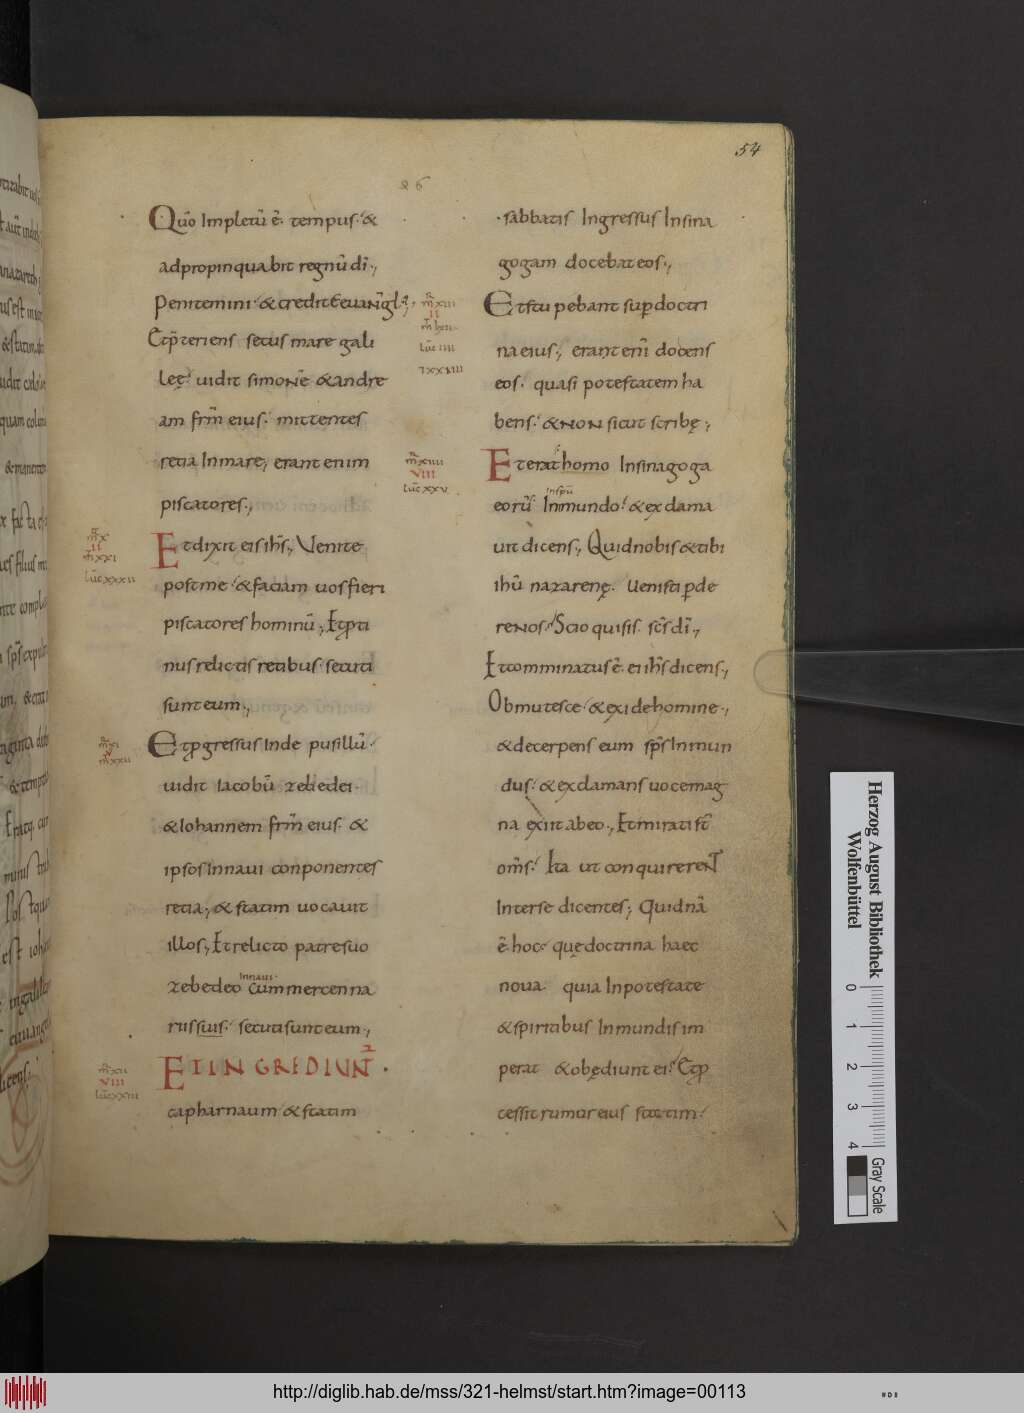 54
26
Quō Impletū ē. tempus. &
adpropinquabit regnū dī.,
Penitemini. & credite euangl̄.
Et p̄teriens secus mare gali
lȩ. uidit simonē & andre
am frm̄ eius. mittentes
retia In mare, erant enim
piscatores.,
Et dixit eis ihs̄., Venite
post me. & faciam uos fieri
piscatores hominū., Et p̱ti
nus relictis retibus. secuti
sunt eum.,
Et p̱gressus Inde pusillū.
uidit Iacobū zebedei.
& Iohannem frm̄ eius. &
ipsos In naui conponentes
retia., & statim uocauit
illos., Et relicto patre suo
In naui.
zebedeo cum mercenna
riis suis. secuti sunt eum.,
ET INGREDIUNT
capharnaum & statim
m̄ x
II
m̄ xxi
lūc xxxii
m̄ xi
V
m̄ xxii
m̄ xii
VIII
lūc xxiii
sabbatis Ingressus In sina
gogam docebat eos.,
Et stupebant sup̱ doctri
na eius., erant enī docens
eos. quasi potestatem ha
bens. & NON sicut scribȩ.,
Et erat homo In sinagoga
In sp̄u
eorū. Inmundo. & exclama
uit dicens., Quid nobis & tibi
ihū nazarenȩ. Uenisti p̱de
re nos. Scio qui sis. sc̄s dī.,
Et comminatus ē. ei ihs̄ dicens.,
Obmutesce. & exi de homine.,
& decerpens eum sp̄s Inmun
dus. & exclamans uoce mag
na exiit ab eo., Et mirati st̄
om̄s. Ita ut conquirerent
Inter se dicentes., Quidnā
ē hoc. quȩ doctrina haec
noua. quia In potestate
& spiritibus Inmundis im
perat & obȩdiunt ei. Et p̱
cessit rumor eius statim.
m̄ xiii
II
lūc iiii
m̄ xiiii
VIII
lūc xxv
Herzog August Bibliothek
Wolfenbüttel
0 1 2 3 4
Gray Scale
http://diglib.hab.de/mss/321-helmst/start.htm?image=00113